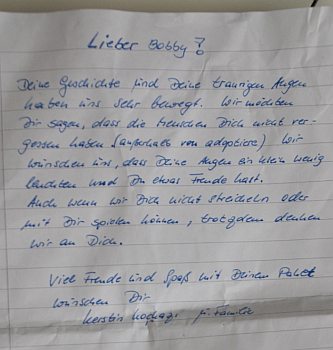 Lieber Bobby!
Deine Geschichte und Deine traurigen Augen
haben uns sehr bewegt. Wir möchten
Dir sagen, dass die Menschen Dich nicht ver-
gessen haben (außerhalb von adoptiere) Wir
wünschen uns, dass Deine Augen ein klein wenig
leuchten und Du etwas Freude hast.
Auch wenn wir Dich nicht streicheln oder
mit Dir spielen können, trotzdem denken
wir an Dich.
Viel Freude und Spaß mit Deinem Paket
wünschen Dir
Kerstin Familie